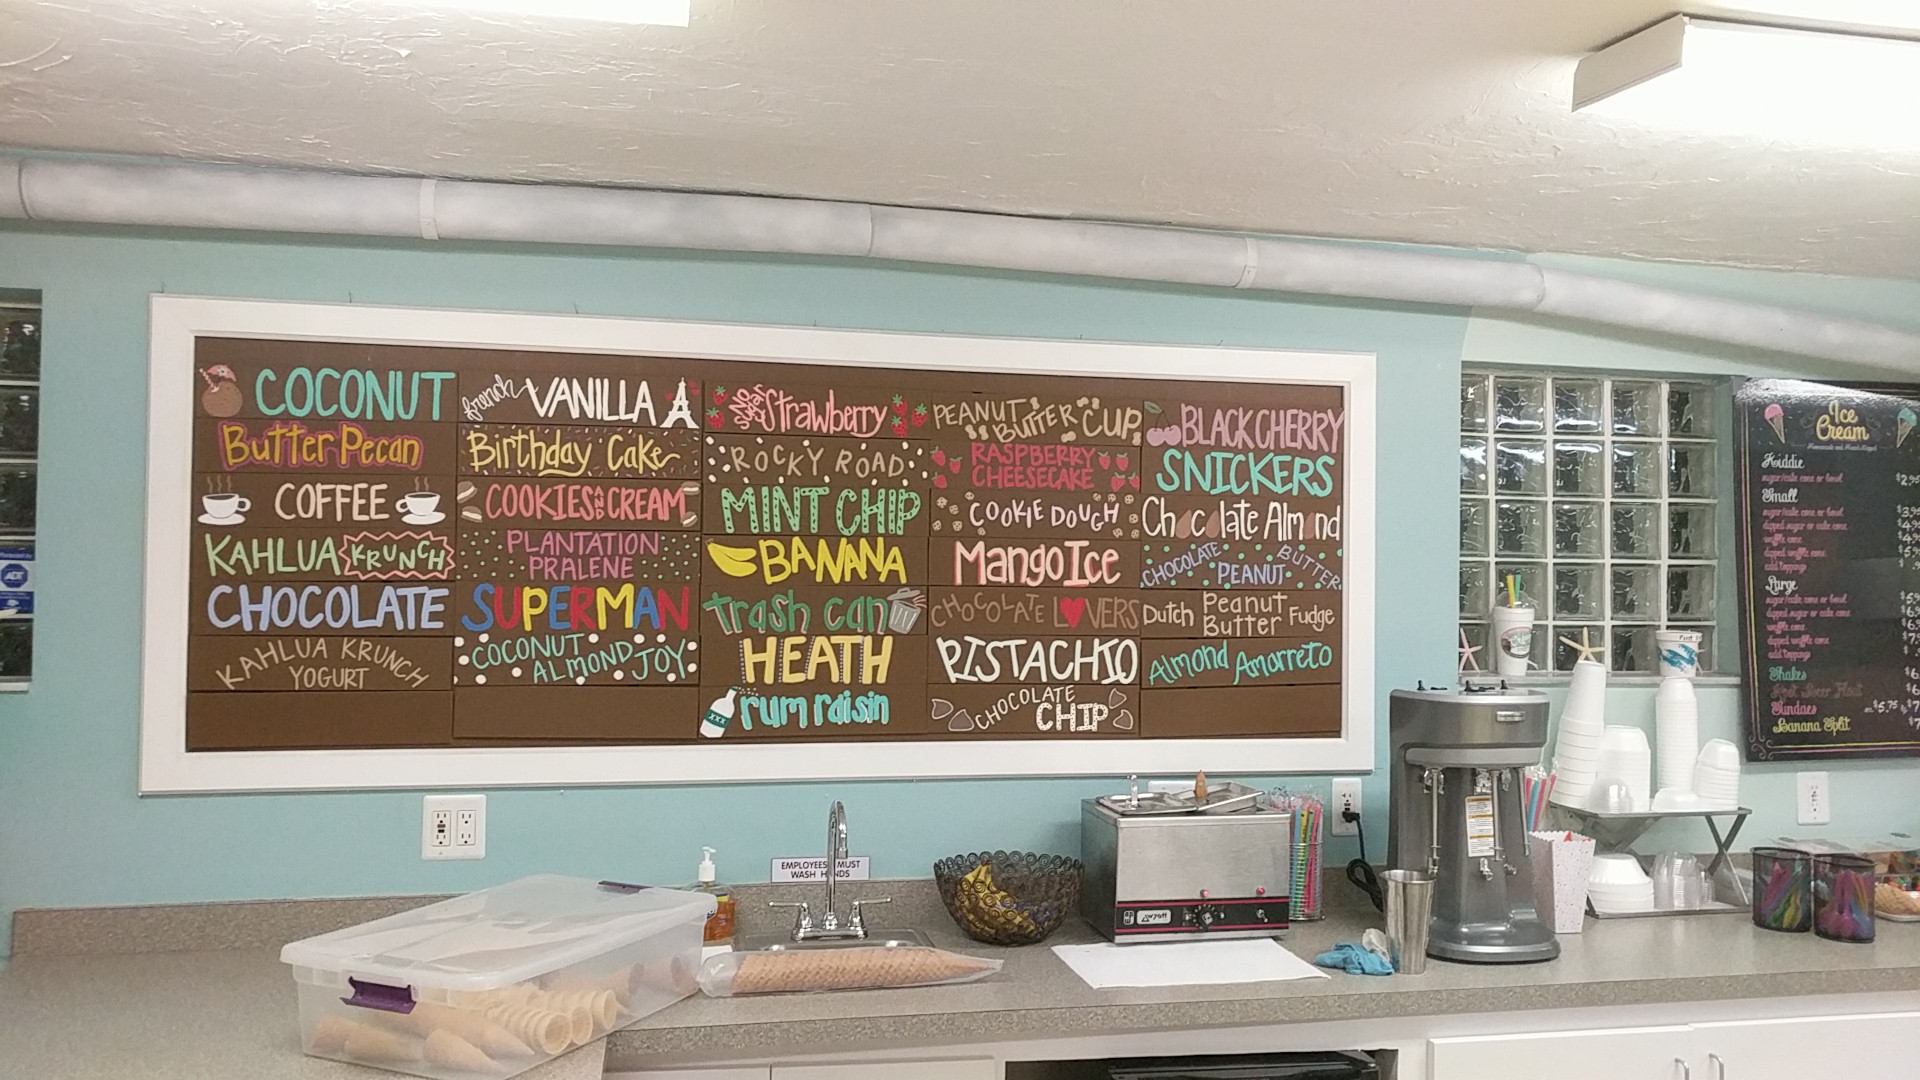 COCONUT
Butter Pecan
COFFEE
KAHLUA KRUNCH
CHOCOLATE
KAHLUA KRUNCH
YOGURT
french VANILLA
Birthday Cake
COOKIES AND CREAM
PLANTATION
PRALENE
SUPERMAN
COCONUT
ALMOND JOY
NO SUGAR Strawberry
ROCKY ROAD
MINT CHIP
BANANA
trash can
HEATH
XXX rum raisin
PEANUT BUTTER CUP
RASPBERRY
CHEESECAKE
COOKIE DOUGH
Mango Ice
CHOCOLATE LOVERS
PISTACHIO
CHOCOLATE
CHIP
BLACK CHERRY
SNICKERS
Chocolate Almond
CHOCOLATE PEANUT BUTTER
Dutch Peanut Butter Fudge
Almond Amorreto
Ice
Cream
Homemade and Hand-Dipped
Kiddie
sugar/cake cone or bowl
Small
sugar/cake cone or bowl
dipped sugar or cake cone
waffle cone
dipped waffle cone
add toppings
Large
sugar/cake cone or bowl
dipped sugar or cake cone
waffle cone
dipped waffle cone
add toppings
Shakes
Root Beer Float
Sundaes
Banana Split
ADT
EMPLOYEES MUST
WASH HANDS